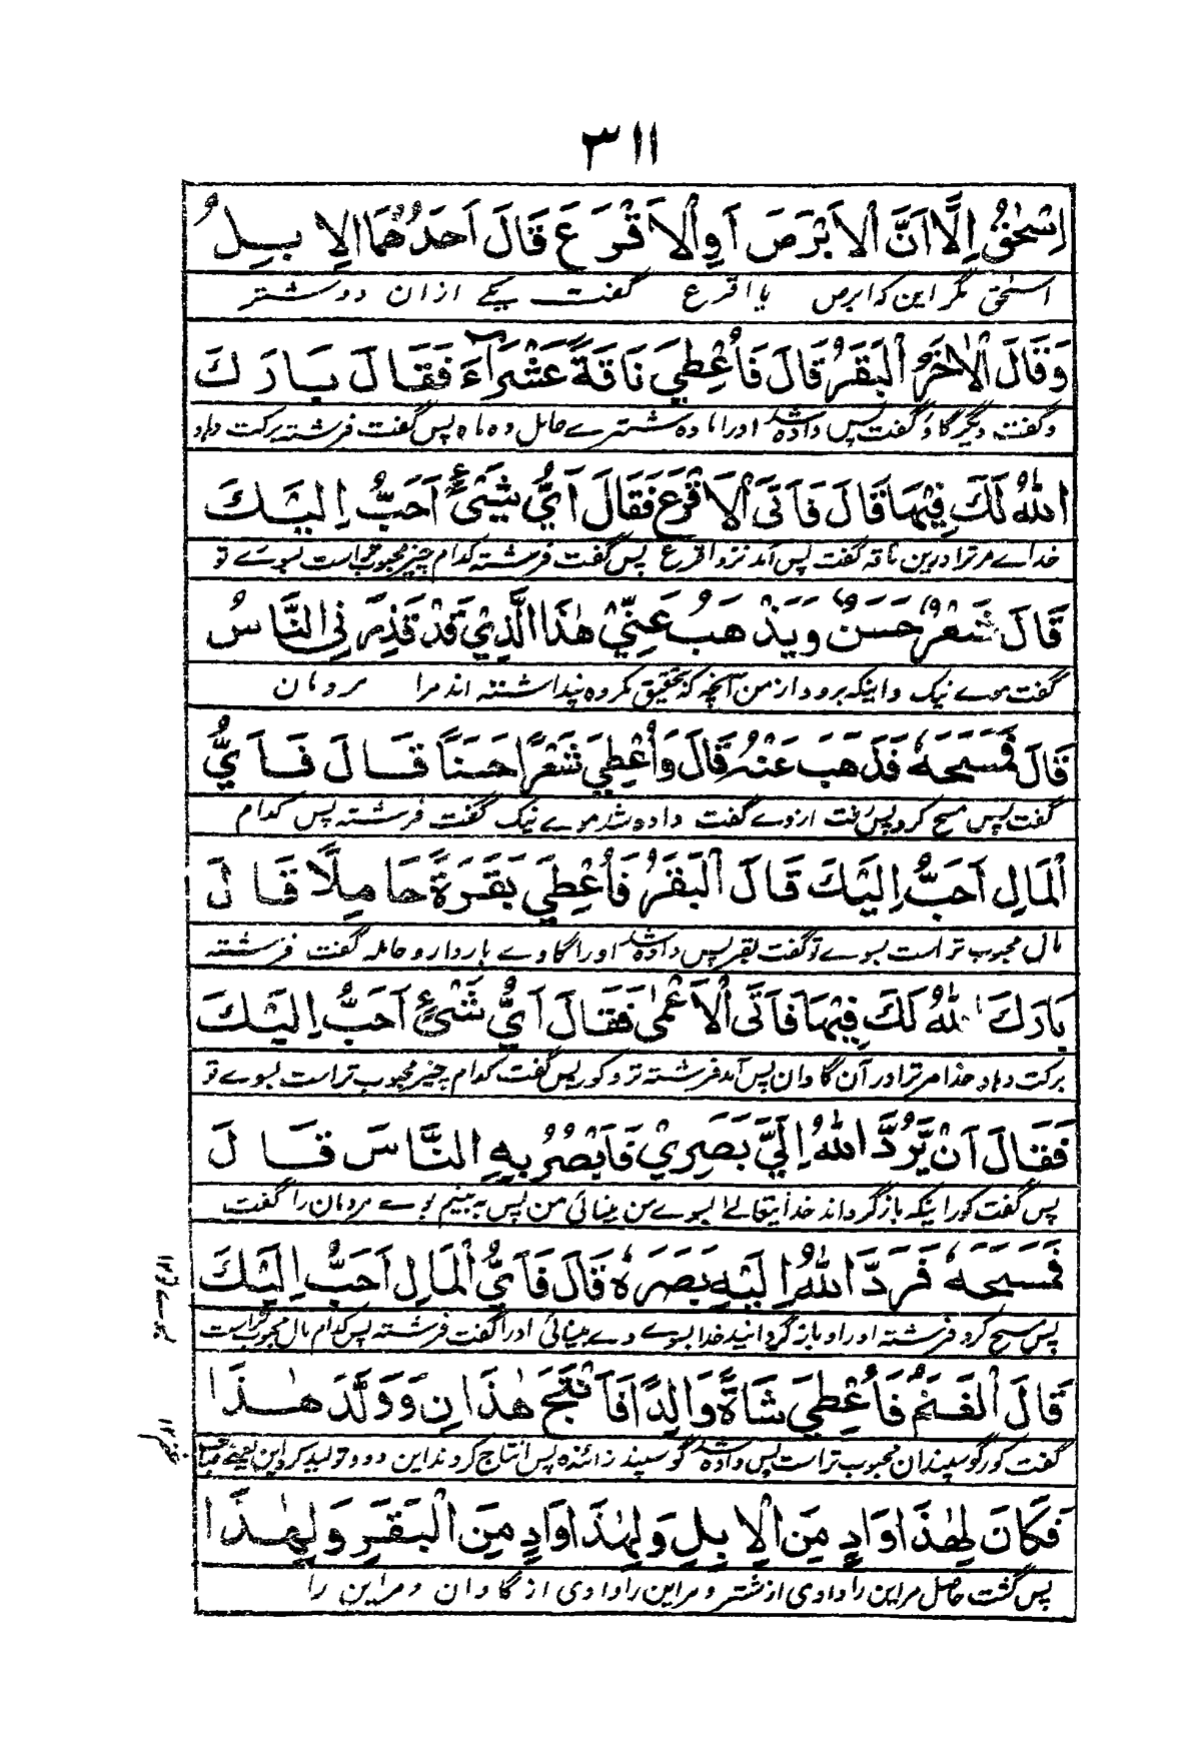 ٣١١
اِسْحٰقُ اِلَّا اَنَّ الْاَبْرَصَ اَوِ الْاَقْرَعَ قَالَ اَحَدُهُمَا الْاِبِلُ
اسحٰق مگر این که ابرص یا اقرع گفت یکے ازان دو شتر
وَقَالَ الْاٰخَرُ الْبَقَرُ قَالَ فَاُعْطِيَ نَاقَةً عَشَرَآءَ فَقَالَ بَارَكَ
و گفت دیگر گاؤ گفت پس داده شد او را ماده شترے حامل ده ماه پس گفت فرشته برکت دهاد
اللهُ لَكَ فِيْهَا قَالَ فَاَتَى الْاَقْرَعَ فَقَالَ اَيُّ شَيْئٍ اَحَبُّ اِلَيْكَ
خداے مر ترا درین ناقه گفت پس آمد نزد اقرع پس گفت فرشته کدام چیز محبوب تر است بسوے تو
قَالَ شَعْرٌ حَسَنٌ وَيَذْهَبُ عَنِّيْ هٰذَا الَّذِيْ قَدْ قَذِرَنِي النَّاسُ
گفت موے نیک و اینکه برود از من آنچه که بتحقیق مکروه پنداشته اند مرا مردمان
قَالَ فَمَسَحَهٗ فَذَهَبَ عَنْهُ قَالَ وَاُعْطِيَ شَعْرًا حَسَنًا قَالَ فَاَيُّ
گفت پس مسح کرد پس رفت ازوے گفت داده شد موے نیک گفت فرشته پس کدام
الْمَالِ اَحَبُّ اِلَيْكَ قَالَ الْبَقَرُ فَاُعْطِيَ بَقَرَةً حَامِلًا قَالَ
مال محبوب تر است بسوے تو گفت بقر پس داده شد او را گاوے باردار و حامله گفت فرشته
بَارَكَ اللهُ لَكَ فِيْهَا فَاَتَى الْاَعْمٰى فَقَالَ اَيُّ شَىْءٍ اَحَبُّ اِلَيْكَ
برکت دهاد خدا مر ترا در آن گاوان پس آمد فرشته نزد کور پس گفت کدام چیز محبوب تر است بسوے تو
فَقَالَ اَنْ يَّرُدَّ اللهُ اِلَيَّ بَصَرِيْ فَاُبْصِرُ بِهِ النَّاسَ قَالَ
پس گفت کور اینکه باز گرداند خدایتعالے بسوے من بینائی من پس به بینم بوے مردمان را گفت
فَمَسَحَهٗ فَرَدَّ اللهُ اِلَيْهِ بَصَرَهٗ قَالَ فَاَيُّ الْمَالِ اَحَبُّ اِلَيْكَ
پس مسح کرد فرشته او را و باز گردانید خدا بسوے وے بینائی او را گفت فرشته پس کدام مال محبوب تر است
قَالَ الْغَنَمُ فَاُعْطِيَ شَاةً وَالِدًا فَاَنْتَجَ هٰذَانِ وَوَلَّدَ هٰذَا
گفت کور گوسپندان محبوب تر است پس داده شد گوسپند زائنده پس انتاج کردند این دو و تولید کرد این یعنے
فَكَانَ لِهٰذَا وَادٍ مِنَ الْاِبِلِ وَلِهٰذَا وَادٍ مِنَ الْبَقَرِ وَلِهٰذَا
پس گشت حاصل مر این را وادی از شتر و مر این را وادی از گاوان و مر این را